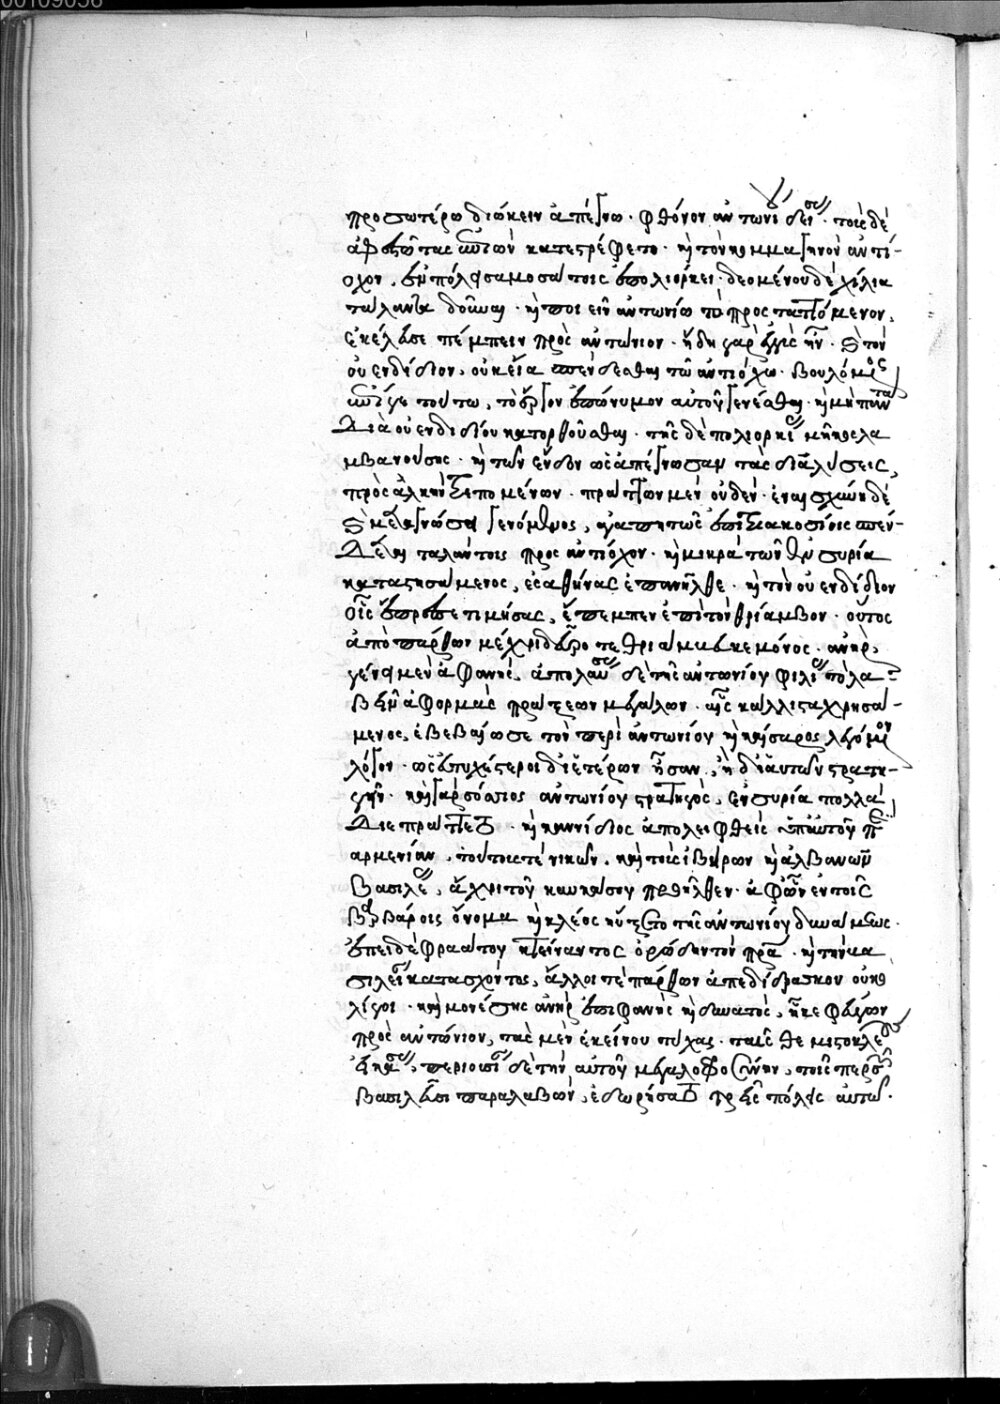 προσωτέρω διώκειν ἀπέγνω· φθόνον ἀντωνίου δείσας· τοὺς δὲ
ἀφεστῶτας αὐτῶν κατεστρέφετο· καὶ τὸν κομμαγηνὸν ἀντί-
οχον, ἐν πόλει σαμοσάτοις ἐπολιόρκει· δεομένου δὲ χίλια
τάλαντα δοῦναι· καὶ ποιεῖν ἀντωνίω τὸ προσταττόμενον,
ἐκέλευσε πέμπειν πρὸς ἀντώνιον· ἤδη γὰρ ἐγγὺς ἦν· καὶ τὸν
οὐενδίδιον, οὐκ εἴα σπένδεσθαι τῶ ἀντιόχω· βουλόμενος
αὐτός γε τούτω, τὸ ἔργον ἐπώνυμον αὐτοῦ γενέσθαι· καὶ μὴ πάντα
διὰ οὐενδιδίου κατορθοῦσθαι· τῆς δὲ πολιορκίας μῆκος λα
μβανούσης· καὶ τῶν ἔνδον ὡς ἀπέγνωσαν τὰς διαλύσεις,
πρὸς ἀλκὴν τρεπομένων· πράττων μὲν οὐδέν· ἐν αἰσχύνη δὲ
καὶ μεταγνώσει γενόμενος, ἀγαπητῶς ἐπὶ τριακοσίοις σπέν-
δεται ταλάντοις πρὸς ἀντίοχον· καὶ μικρὰ τῶν ἐν συρία
καταστησάμενος, ἐς ἀθήνας ἐπανῆλθε· καὶ τὸν οὐενδίδιον
οἷς ἔπρεπε τιμήσας, ἔπεμπεν ἐπὶ τὸν θρίαμβον· οὗτος
ἀπὸ πάρθων μέχρι δεῦρο τεθριάμβευκε μόνος· ἀνὴρ,
γένει μὲν ἀφανής, ἀπολαύσας δὲ τῆς ἀντωνίου φιλίας τὸ λα-
βεῖν ἀφορμὰς πράξεων μεγάλων· αἷς κάλλιστα χρησά-
μενος, ἐβεβαίωσε τὸν περὶ ἀντωνίου καὶ καίσαρος λεγόμενον
λόγον· ὡς εὐτυχέστεροι δι' ἑτέρων ἦσαν, ἢ δι' αὑτῶν στρατη-
γεῖν· καὶ γὰρ σόσσιος ἀντωνίου στρατηγὸς, ἐν συρία πολλὰ
διεπράττετο· καὶ κανίδιος ἀπολειφθεὶς ὑπ' αὐτοῦ περὶ
ἀρμενίαν, τούτους τε νικῶν, καὶ τοὺς ἰβήρων καὶ ἀλβανῶν
βασιλέας, ἄχρι τοῦ καυκάσου προῆλθεν· ἀφ' ὧν ἐν τοῖς
βαρβάροις ὄνομα καὶ κλέος ηὔξετο τῆς ἀντωνίου δυνάμεως·
ἐπεὶ δὲ φραάτου κτείναντος ὀρώδην τὸν πατέρα· καὶ τὴν βα
σιλείαν κατασχόντος, ἄλλοι τε πάρθων ἀπεδίδρασκον οὐκ ὀ
λίγοι· καὶ μονέσης ἀνὴρ ἐπιφανὴς καὶ δυνατὸς, ἧκε φεύγων
πρὸς ἀντώνιον, τὰς μὲν ἐκείνου τύχας· ταῖς θεμιστοκλέους
εἰκάσας, περιουσίαν δὲ τὴν αὐτοῦ μεγαλοφροσύνην, τοῖς περσῶν
βασιλεῦσι παραλαβὼν, ἐδωρήσατο τρεῖς πόλεις αὐτῶ·